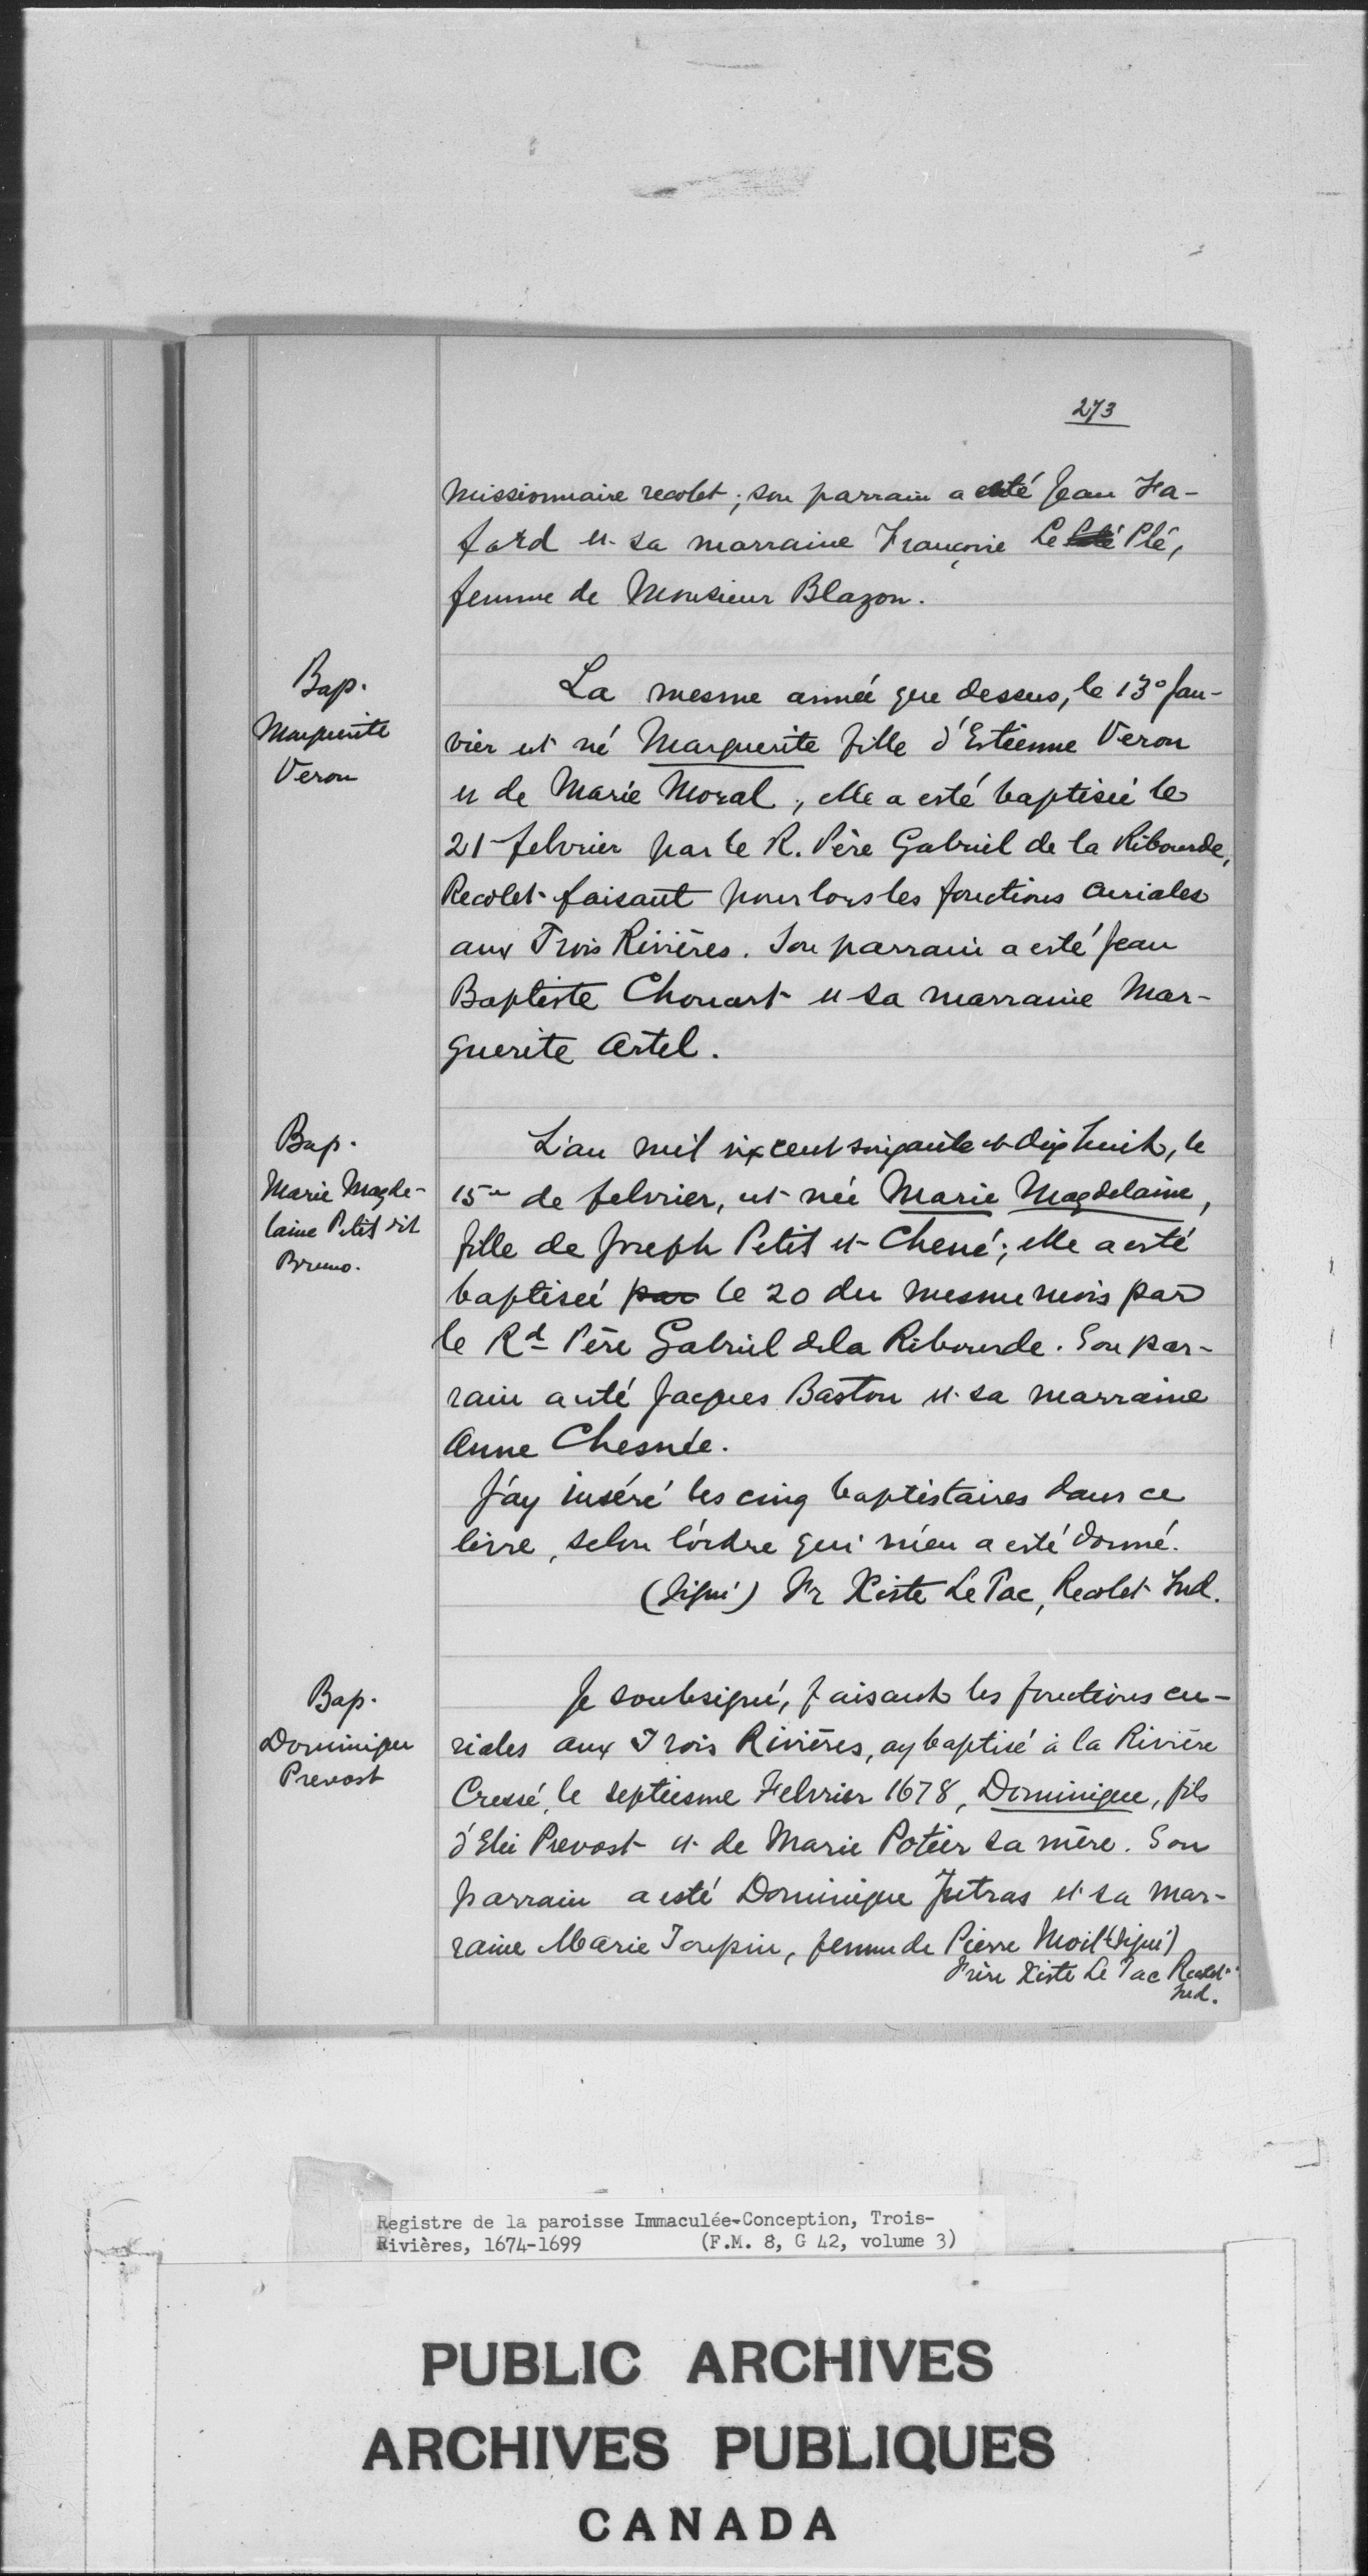 273
missionnaire recolet; son parrain a esté Jean Ha-
fard et sa marraine Françoise Le Plé,
femme de Monsieur Blazon.
Bap.
Marguerite
Veron
La mesme année que dessus, le 13e Jan-
vier est né Marguerite fille d'Estienne Veron
et de Marie Moral, elle a esté baptisée le
21 febvrier par le R. Père Gabriel de la Ribourde,
Recolet faisant pour lors les fonctions curiales
aux Trois Rivières. Son parrain a esté Jean
Baptiste Chouart et sa marraine Mar-
guerite Artel.
Bap.
Marie Magde-
laine Petit dit
Bruno.
L'an mil six cent soixante et dix huit, le
15e de febvrier, est née Marie Magdelaine,
fille de Joseph Petit et Chené; elle a esté
baptisée par le 20 du mesme mois par
le Rd Père Gabriel de la Ribourde. Son par-
rain a esté Jacques Baston et sa marraine
Anne Chesnée.
J'ay inséré les cinq baptistaires dans ce
livre, selon l'ordre qui m'en a esté donné.
(Signé) Fr Xiste Le Tac, Recolet Ind.
Bap.
Dominique
Prevost
Je soubsigné, faisant les fonctions cu-
riales aux Trois Rivières, ay baptisé à la Rivière
Cressé, le septiesme Febvrier 1678, Dominique, fils
d'Elie Prevost et de Marie Potier sa mère. Son
parrain a esté Dominique Jutras et sa mar-
raine Marie Toupin, femme de Pierre Moil (Signé)
Frère Xiste Le Tac Recolet
Ind.
Registre de la paroisse Immaculée-Conception, Trois-
Rivières, 1674-1699 (F.M. 8, G 42, volume 3)
PUBLIC ARCHIVES
ARCHIVES PUBLIQUES
CANADA